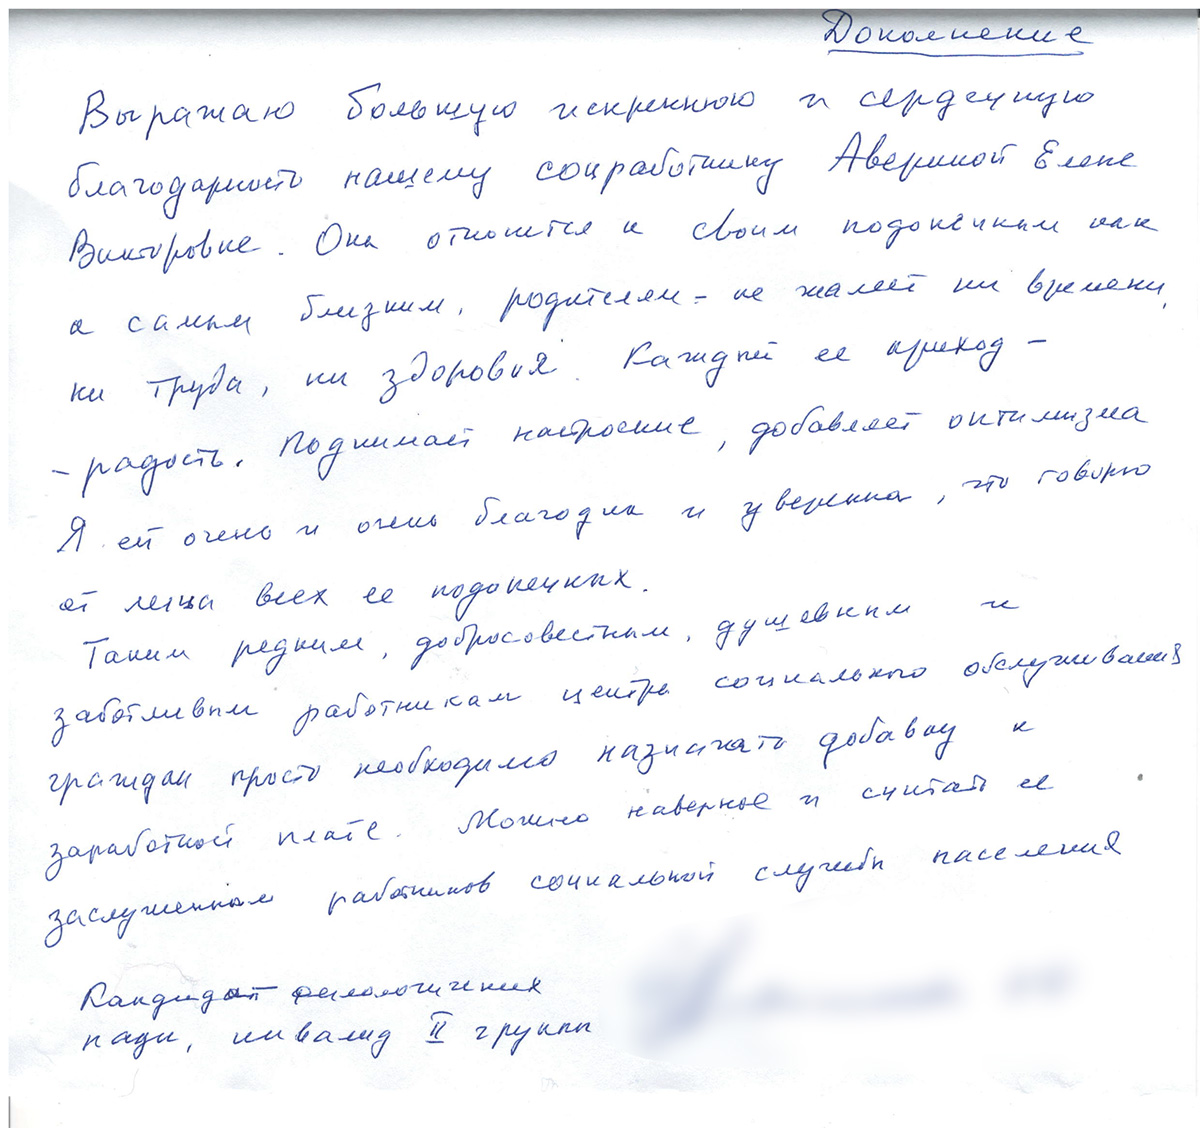 Дополнение
Выражаю большую искреннюю и сердечную
благодарность нашему соцработнику Авериной Елене
Викторовне. Она относится к своим подопечным как
к самым близким, родителям - не жалеет ни времени,
ни труда, ни здоровья. Каждый ее приход -
- радость. Поднимает настроение, добавляет оптимизма
Я ей очень и очень благодарна и уверенна, что говорю
от лица всех ее подопечных.
Таким редким, добросовестным, душевным и
заботливым работникам центра социального обслуживания
граждан просто необходимо назначать добавку к
заработной плате. Можно наверное и считать ее
заслуженным работников социальной службы населения
Кандидат филологических
наук, инвалид II группы